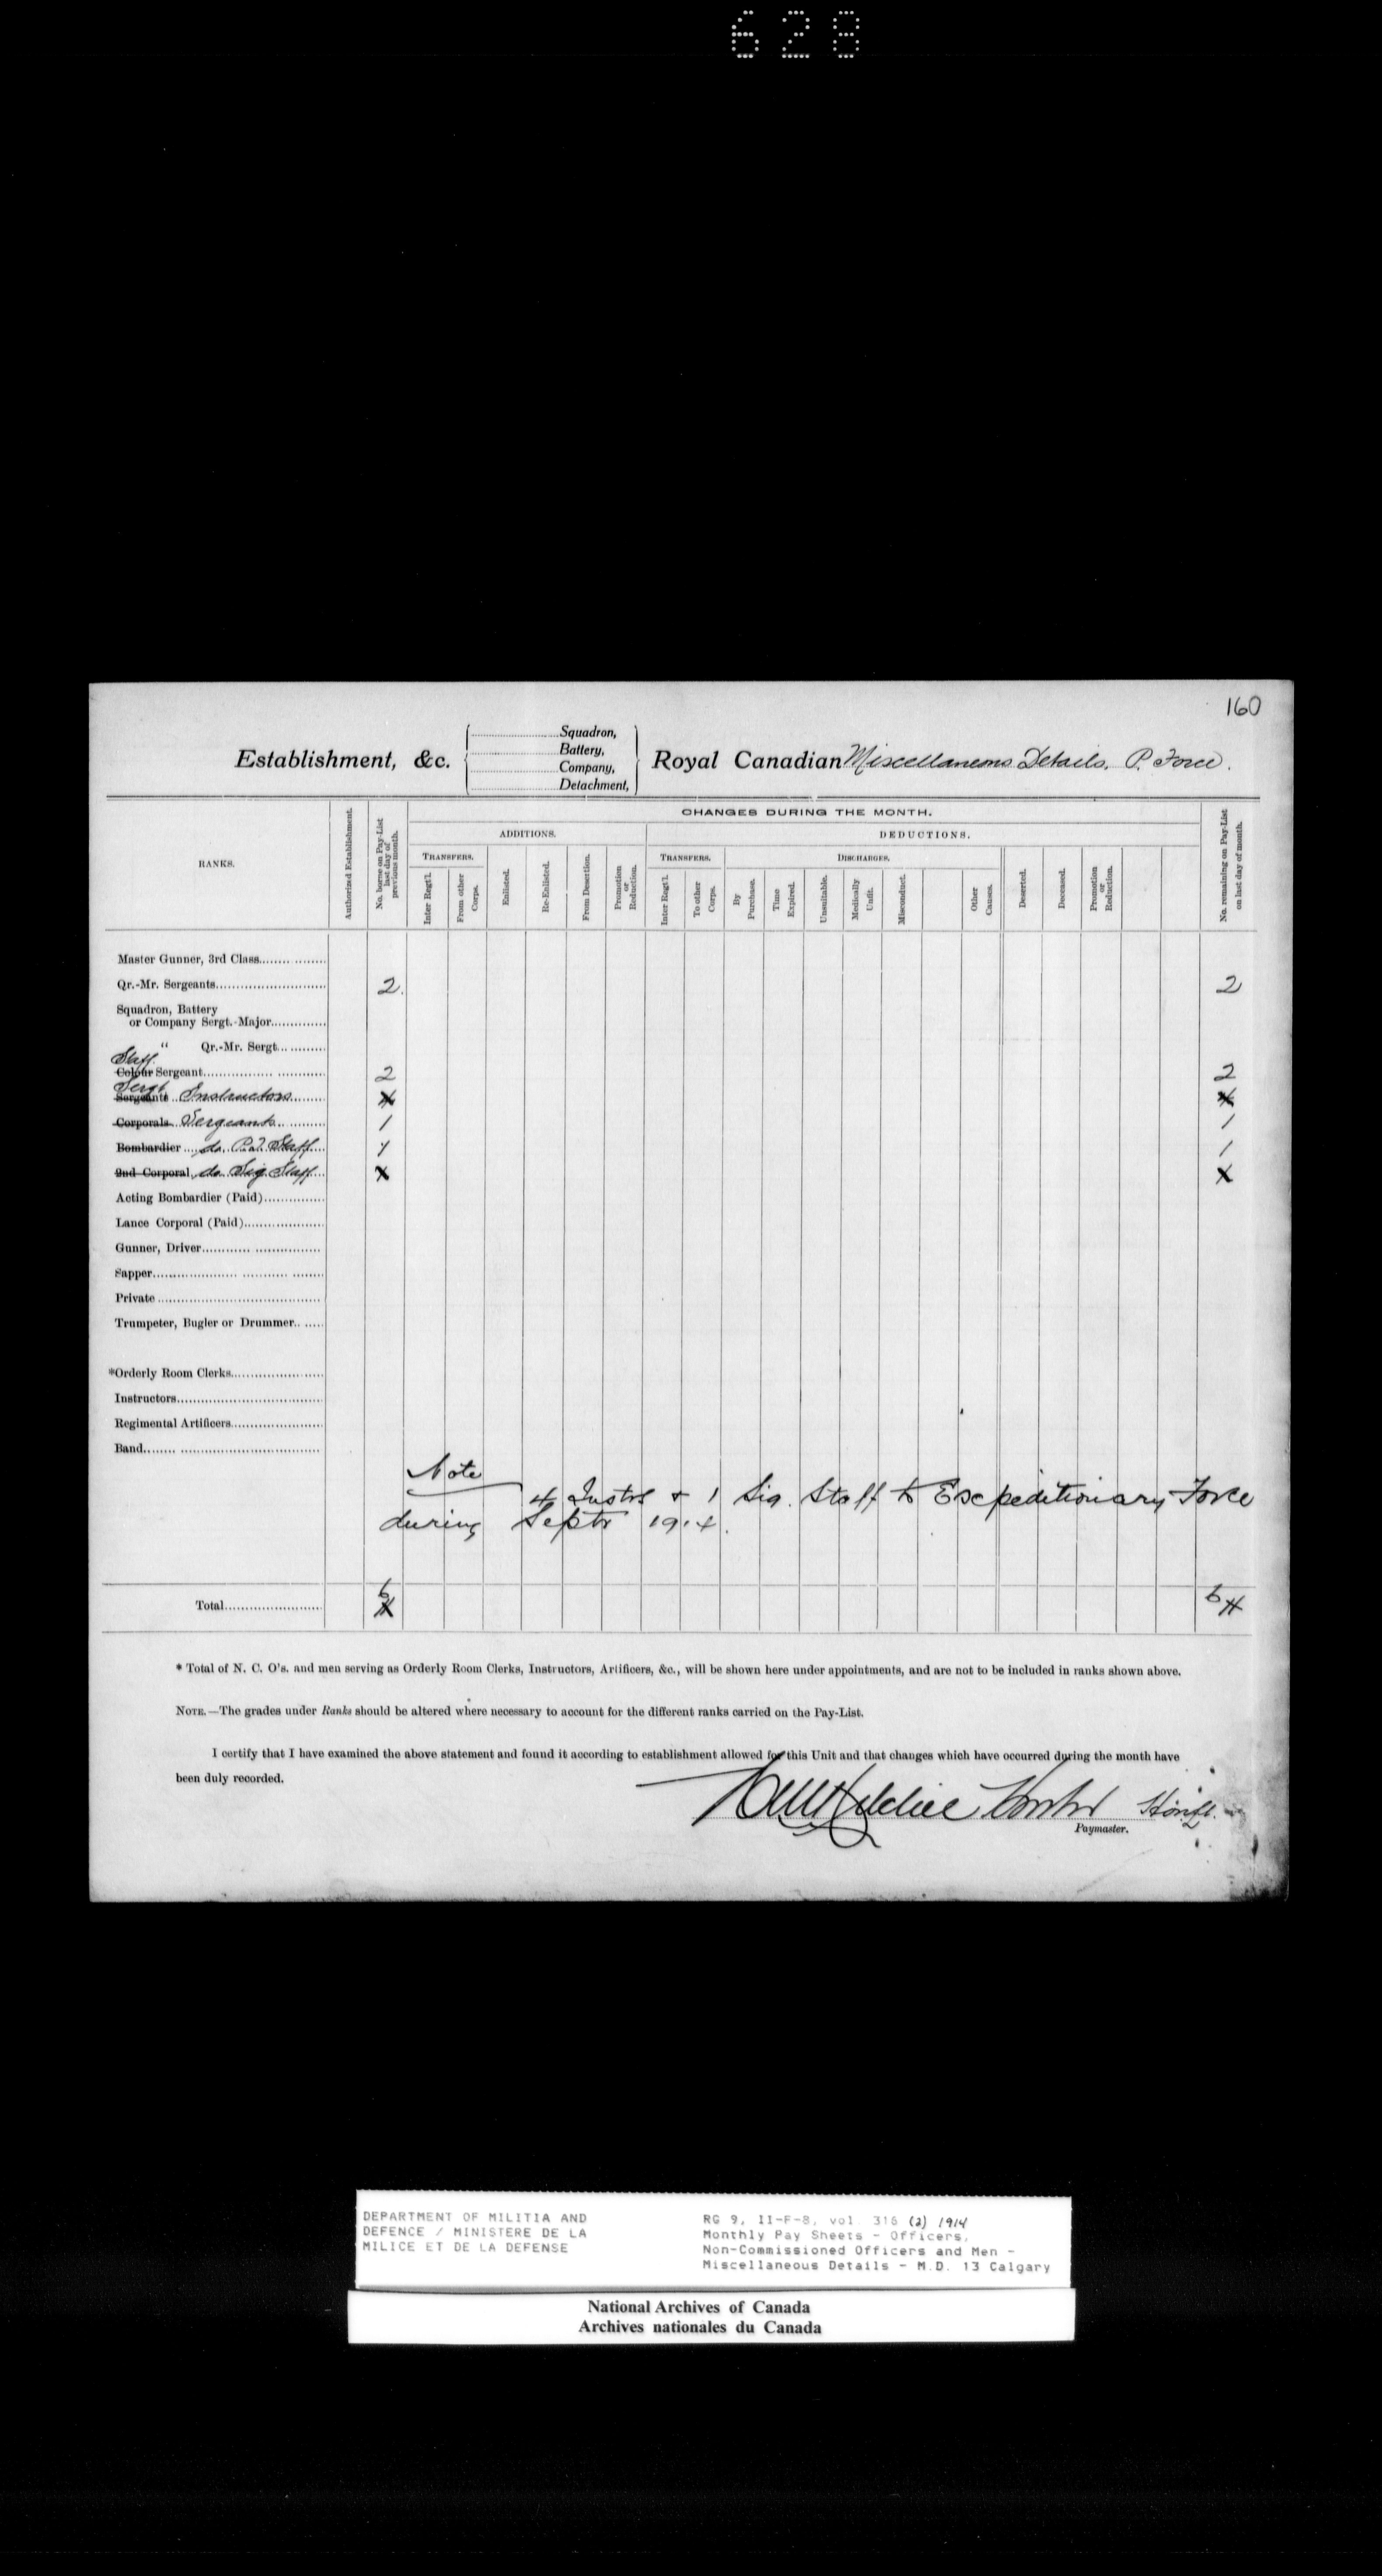 628
160
Squadron,
Battery,
Company,
Detachment,
Establishment, &c. Royal Canadian Miscellaneous Details. P. Force.
CHANGES DURING THE MONTH.
ADDITIONS. DEDUCTIONS.
RANKS.
Authorized Establishment.
No. borne on Pay-List last day of previous month.
TRANSFERS.
Inter Regt'l.
From other Corps.
Enlisted.
Re-Enlisted.
From Desertion.
Promotion or Reduction.
TRANSFERS.
Inter Regt'l.
To other Corps.
DISCHARGES.
By Purchase.
Time Expired.
Unsuitable.
Medically Unfit.
Misconduct.
Other Causes.
Deserted.
Deceased.
Promotion or Reduction.
No. remaining on Pay-List on last day of month.
Master Gunner, 3rd Class
Qr.-Mr. Sergeants 2. 2
Squadron, Battery
or Company Sergt.-Major
" Qr.-Mr. Sergt
Staff
Colour Sergeant 2 2
Sergt
Sergeants Instructors
Corporals Sergeants 1 1
Bombardier do. Staff 1 1
2nd Corporal do Sig. Staff
Acting Bombardier (Paid)
Lance Corporal (Paid)
Gunner, Driver
Sapper
Private
Trumpeter, Bugler or Drummer
*Orderly Room Clerks
Instructors
Regimental Artificers
Band
Note
4 Instrs + 1 Sig. Staff to Expeditionary Force
during Septr 1914.
Total 6 6
* Total of N. C. O's. and men serving as Orderly Room Clerks, Instructors, Artificers, &c., will be shown here under appointments, and are not to be included in ranks shown above.
NOTE.—The grades under Ranks should be altered where necessary to account for the different ranks carried on the Pay-List.
I certify that I have examined the above statement and found it according to establishment allowed for this Unit and that changes which have occurred during the month have
been duly recorded.
Paymaster.
DEPARTMENT OF MILITIA AND
DEFENCE / MINISTERE DE LA
MILICE ET DE LA DEFENSE
RG 9, II-F-8, vol. 316 (2) 1914
Monthly Pay Sheets - Officers,
Non-Commissioned Officers and Men -
Miscellaneous Details - M.D. 13 Calgary
National Archives of Canada
Archives nationales du Canada